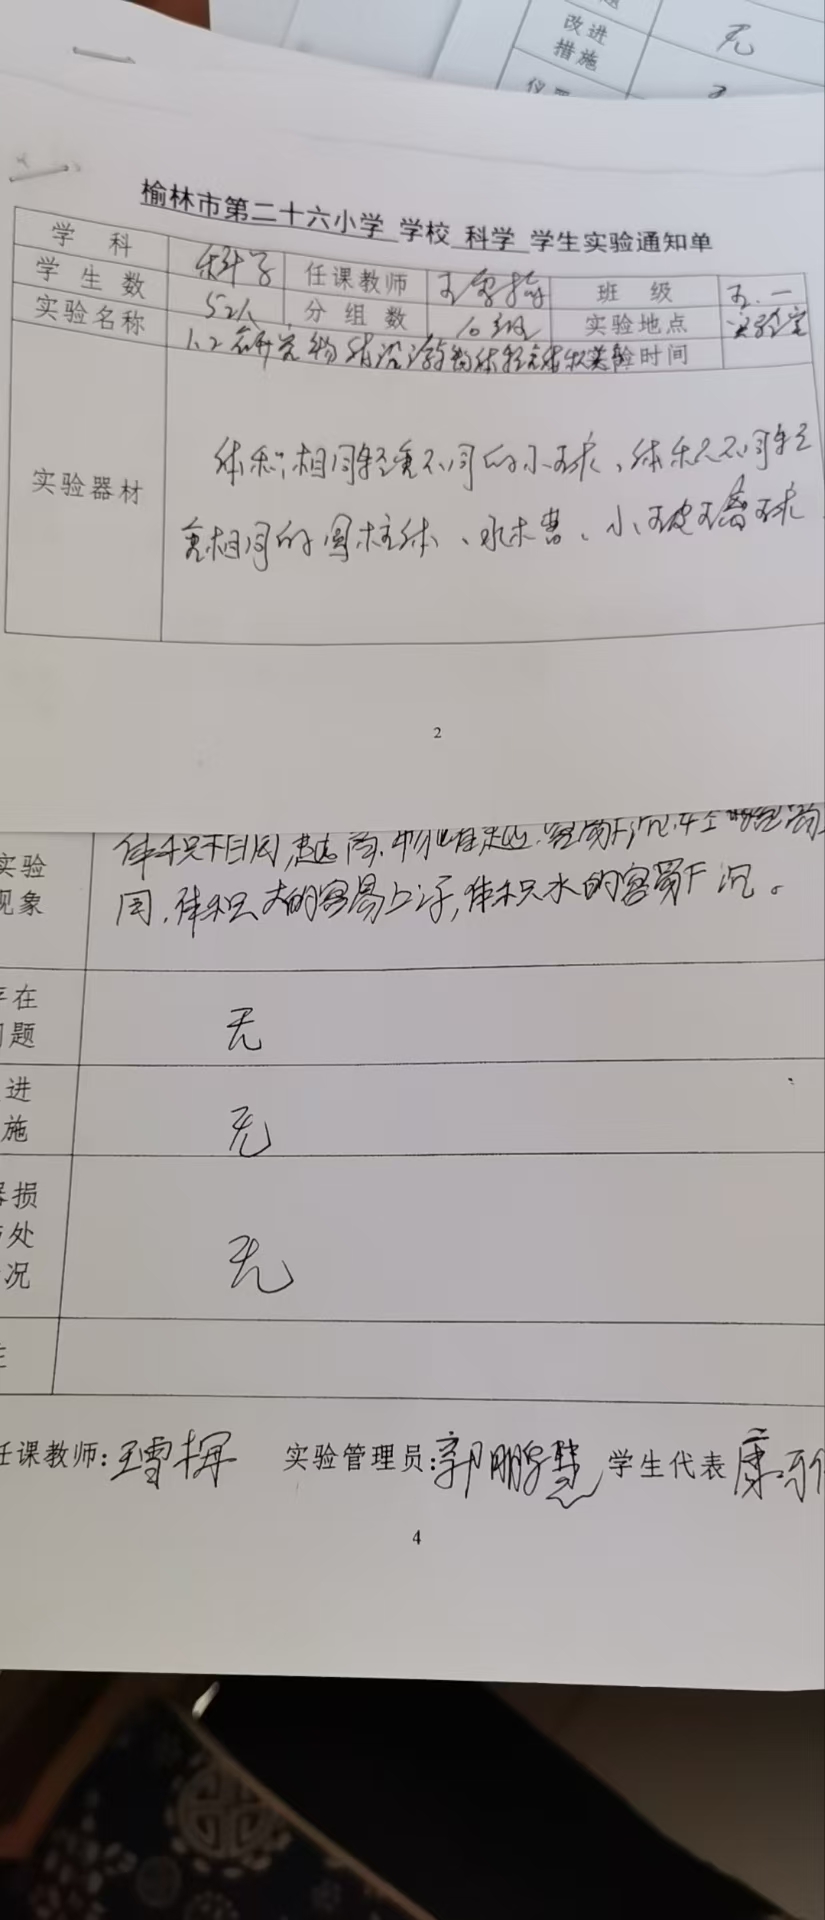 改进
措施
无
榆林市第二十六小学 学校 科学 学生实验通知单
学 科 科学 任课教师 班 级 五.一
学生数 52人 分组数 10组 实验地点 实验室
实验名称 1.2研究物体沉浮 实验时间
实验器材
体积相同轻重不同的小球、体积不同轻
重相同的圆柱体、水槽、小玻璃球
2
实验
现象
体积相同
同,体积大的容易上浮,体积小的容易下沉。
在
题
无
进
施
无
损
处
况
无
任课教师:王雪梅 实验管理员:郭鹏慧 学生代表 康
4